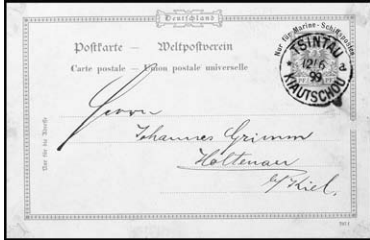 Deutschland
Postkarte — Weltpostverein
Carte postale — Union postale universelle
Nur für Marine-Schiffsposten
TSINTAU
* 12/6 a
99
KIAUTSCHOU
Nur für die Adresse
Herrn
Johannes Grimm
Holtenau
b/Kiel.